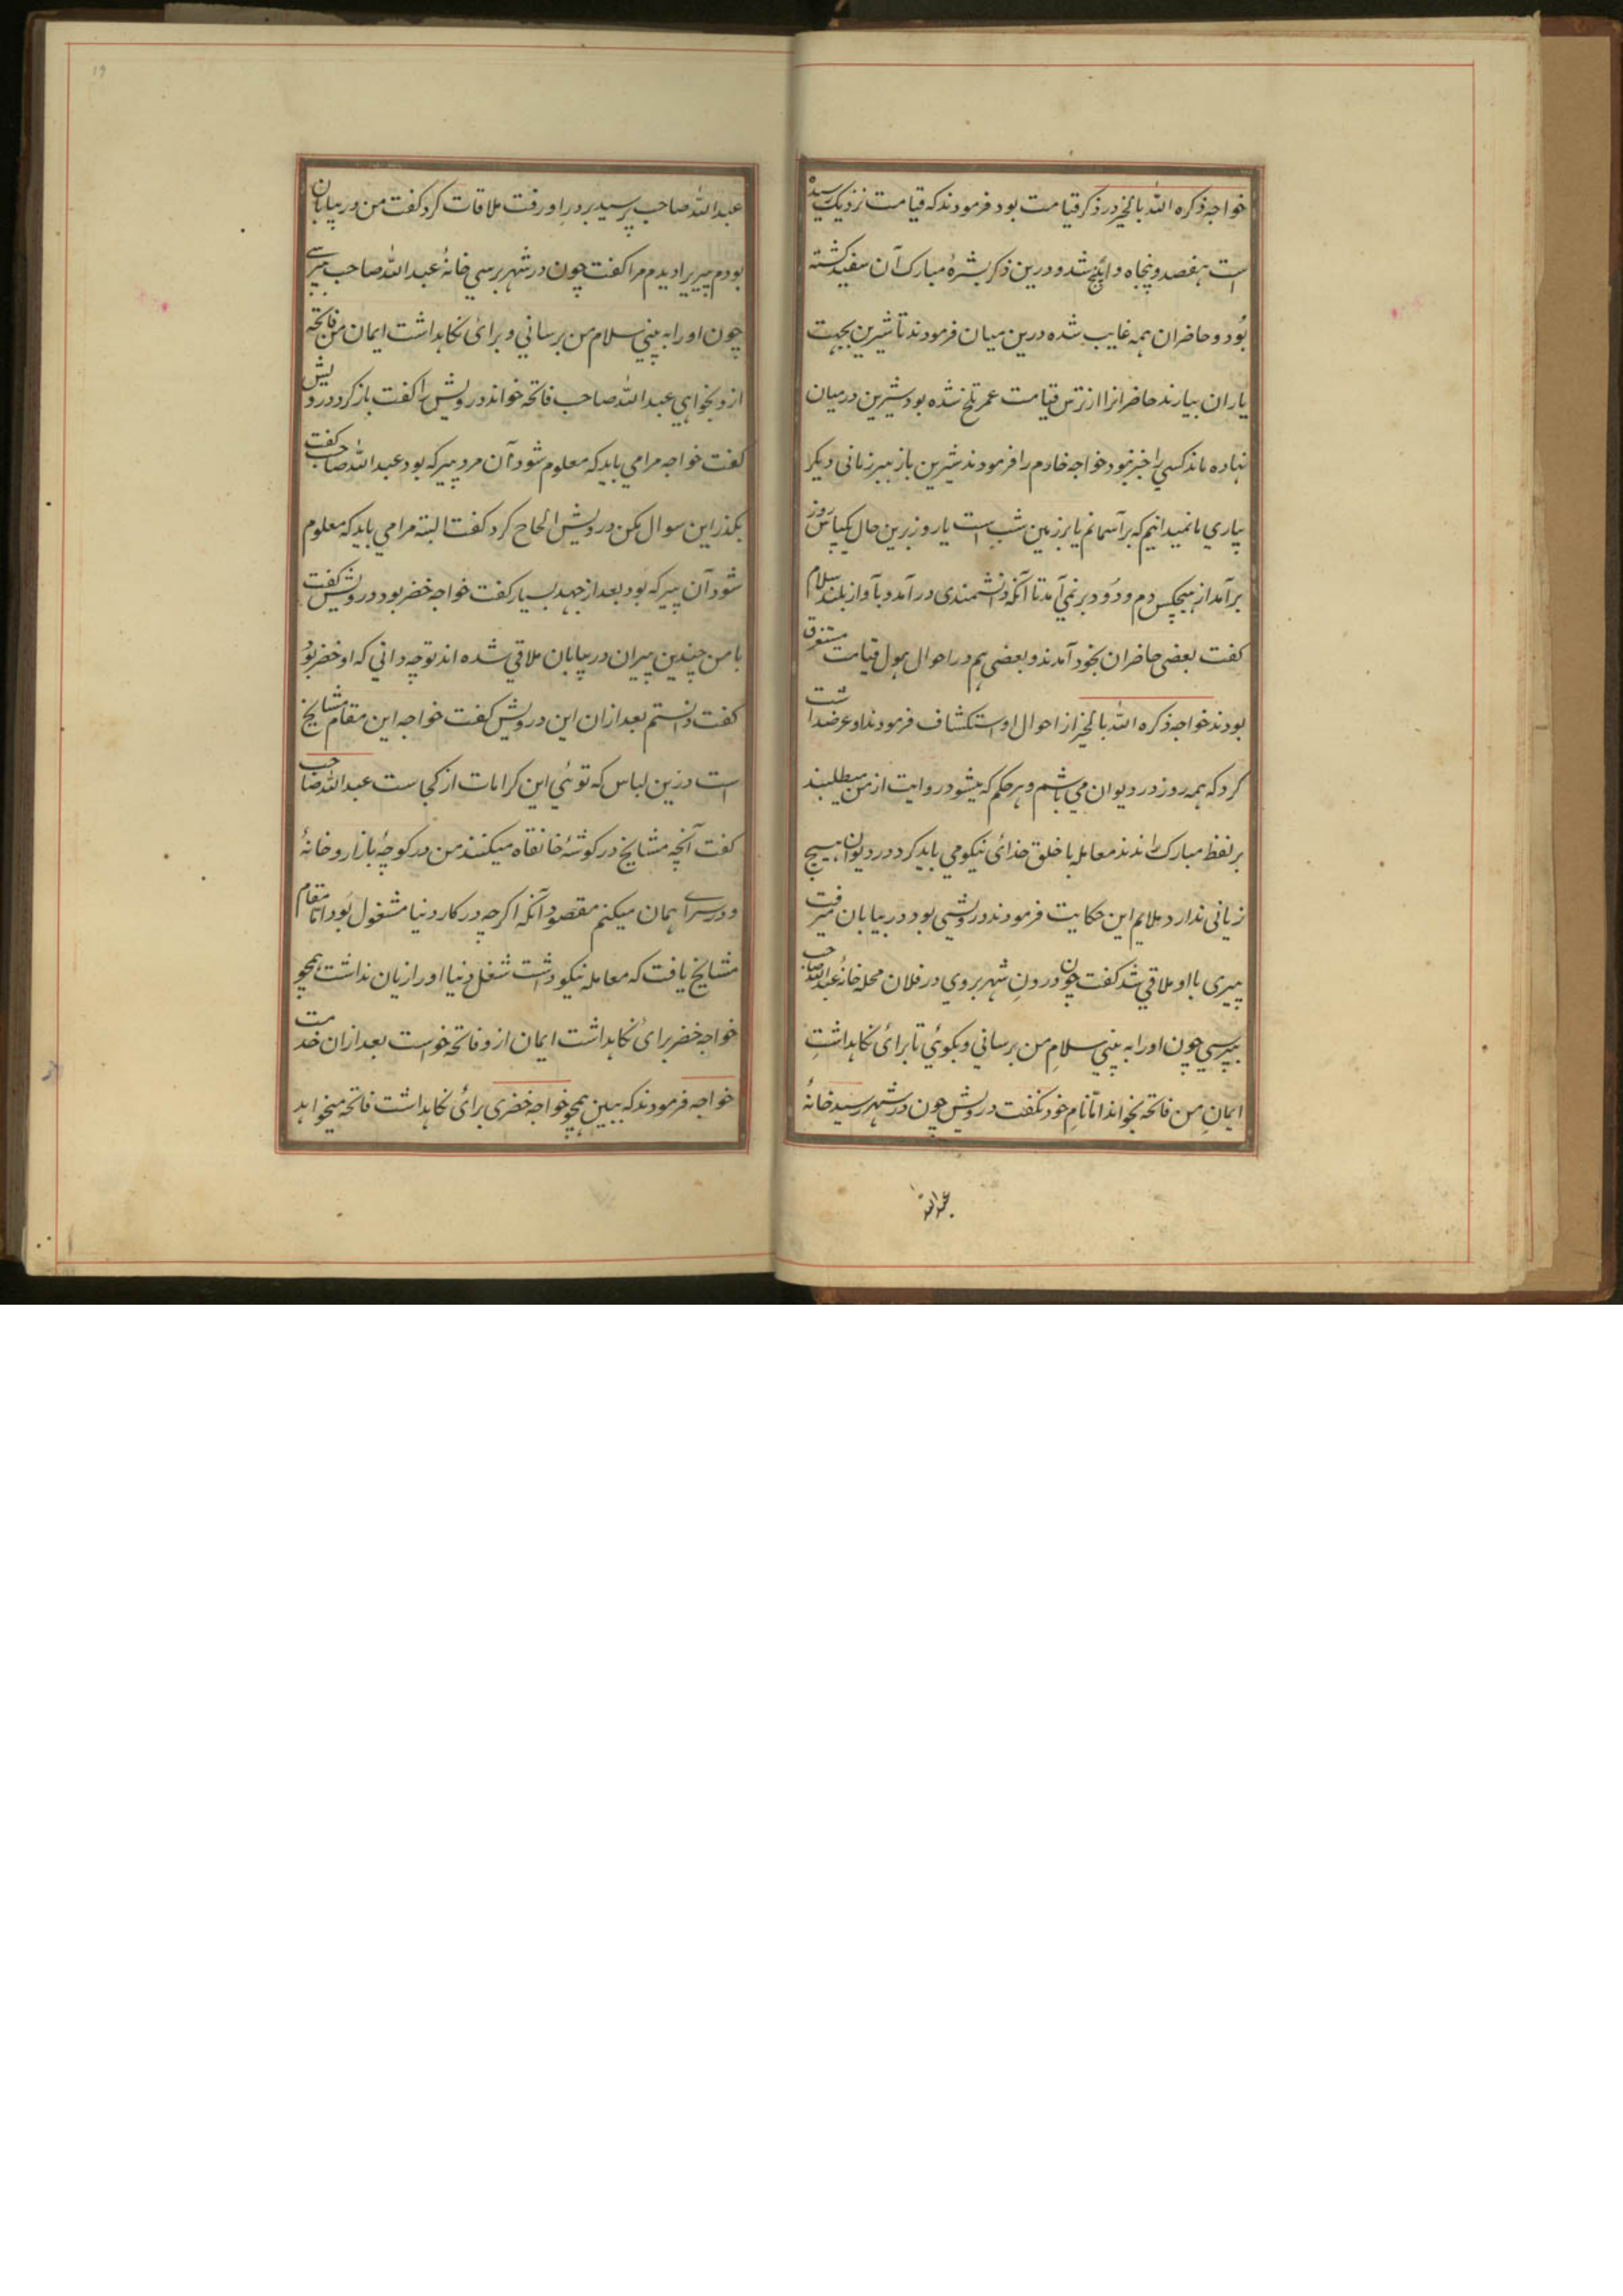 خواجه ذکره الله بالخیر در ذکر قیامت بود فرمودند که قیامت نزدیک رسیده
است هفصد و پنجاه و پنج شد و درین ذکر بشرهٔ مبارک آن سفید گشته
بود و حاضران همه غایب شده درین میان فرمودند تا شیرین بجهت
یاران بیارند حاضرانرا از ترس قیامت عمر تلخ شده بود شیرین درمیان
نهاده ماند کسی را خبر نبود خواجه خادم را فرمودند شیرین باز ببر زمانی دیگر
بیاری ما نمیدانیم که بر آسمانم یا بر زمین شب است یا روز برین حال یکپاس روز
برآمد از هیچکس دم و دود بر نمی آمد تا آنکه دانشمندی درآمد و بآواز بلند سلام
گفت بعضی حاضران بخود آمدند و بعضی هم در احوال هول قیامت مستغرق
بودند خواجه ذکره الله بالخیر از احوال او استکشاف فرمودند او عرضداشت
کرد که همه روز در دیوان می باشم و هر حکم که میشود روایت از من میطلبند
بر لفظ مبارک راندند معامله با خلق خدائی نیکو می باید کرد در دیوان هیچ
زیانی ندارد ملایم این حکایت فرمودند درویشی بود در بیابان میرفت
پیری با او ملاقی شد گفت چون درون شهر بروی در فلان محله خانهٔ عبدالله صاحب
بپرسی چون او را به بینی سلام من برسانی و بگوئی تا برائی نگاهداشتِ
ایمانِ من فاتحه بخواند اما نامِ خود نگفت درویش چون در شهر رسید خانهٔ
عبدالله
عبدالله صاحب پرسید بر در او رفت ملاقات کرد گفت من در بیابان
بودم پیریرا دیدم مرا گفت چون در شهر برسی خانهٔ عبدالله صاحب بپرسی
چون او را به بینی سلام من برسانی و برائی نگاهداشت ایمان من فاتحه
از و بخواهی عبدالله صاحب فاتحه خواند درویش را گفت باز گرد درویش
گفت خواجه مرا می باید که معلوم شود آن مرد پیر که بود عبدالله صاحب گفت
بگذر این سوال مکن درویش الحاح کرد گفت البته مرا می باید که معلوم
شود آن پیر که بود بعد از جهد بسیار گفت خواجه خضر بود درویش گفت
با من چندین پیران در بیابان ملاقی شده اند تو چه دانی که او خضر بود
گفت دانستم بعد ازان این درویش گفت خواجه این مقام مشایخ
است درین لباس که توئی این کرامات از کجاست عبدالله صاحب
گفت آنچه مشایخ در گوشهٔ خانقاه میکنند من در کوچهٔ بازار و خانهٔ
و در سرای همان میکنم مقصود آنکه اگرچه در کار دنیا مشغول بود اما مقام
مشایخ یافت که معامله نیکو داشت شغل دنیا او را زیان نداشت همچو
خواجه خضر برائی نگاهداشت ایمان از و فاتحه خواست بعد ازان خدمت
خواجه فرمودند که ببین همچو خواجه خضری برائی نگاهداشت فاتحه میخواهد